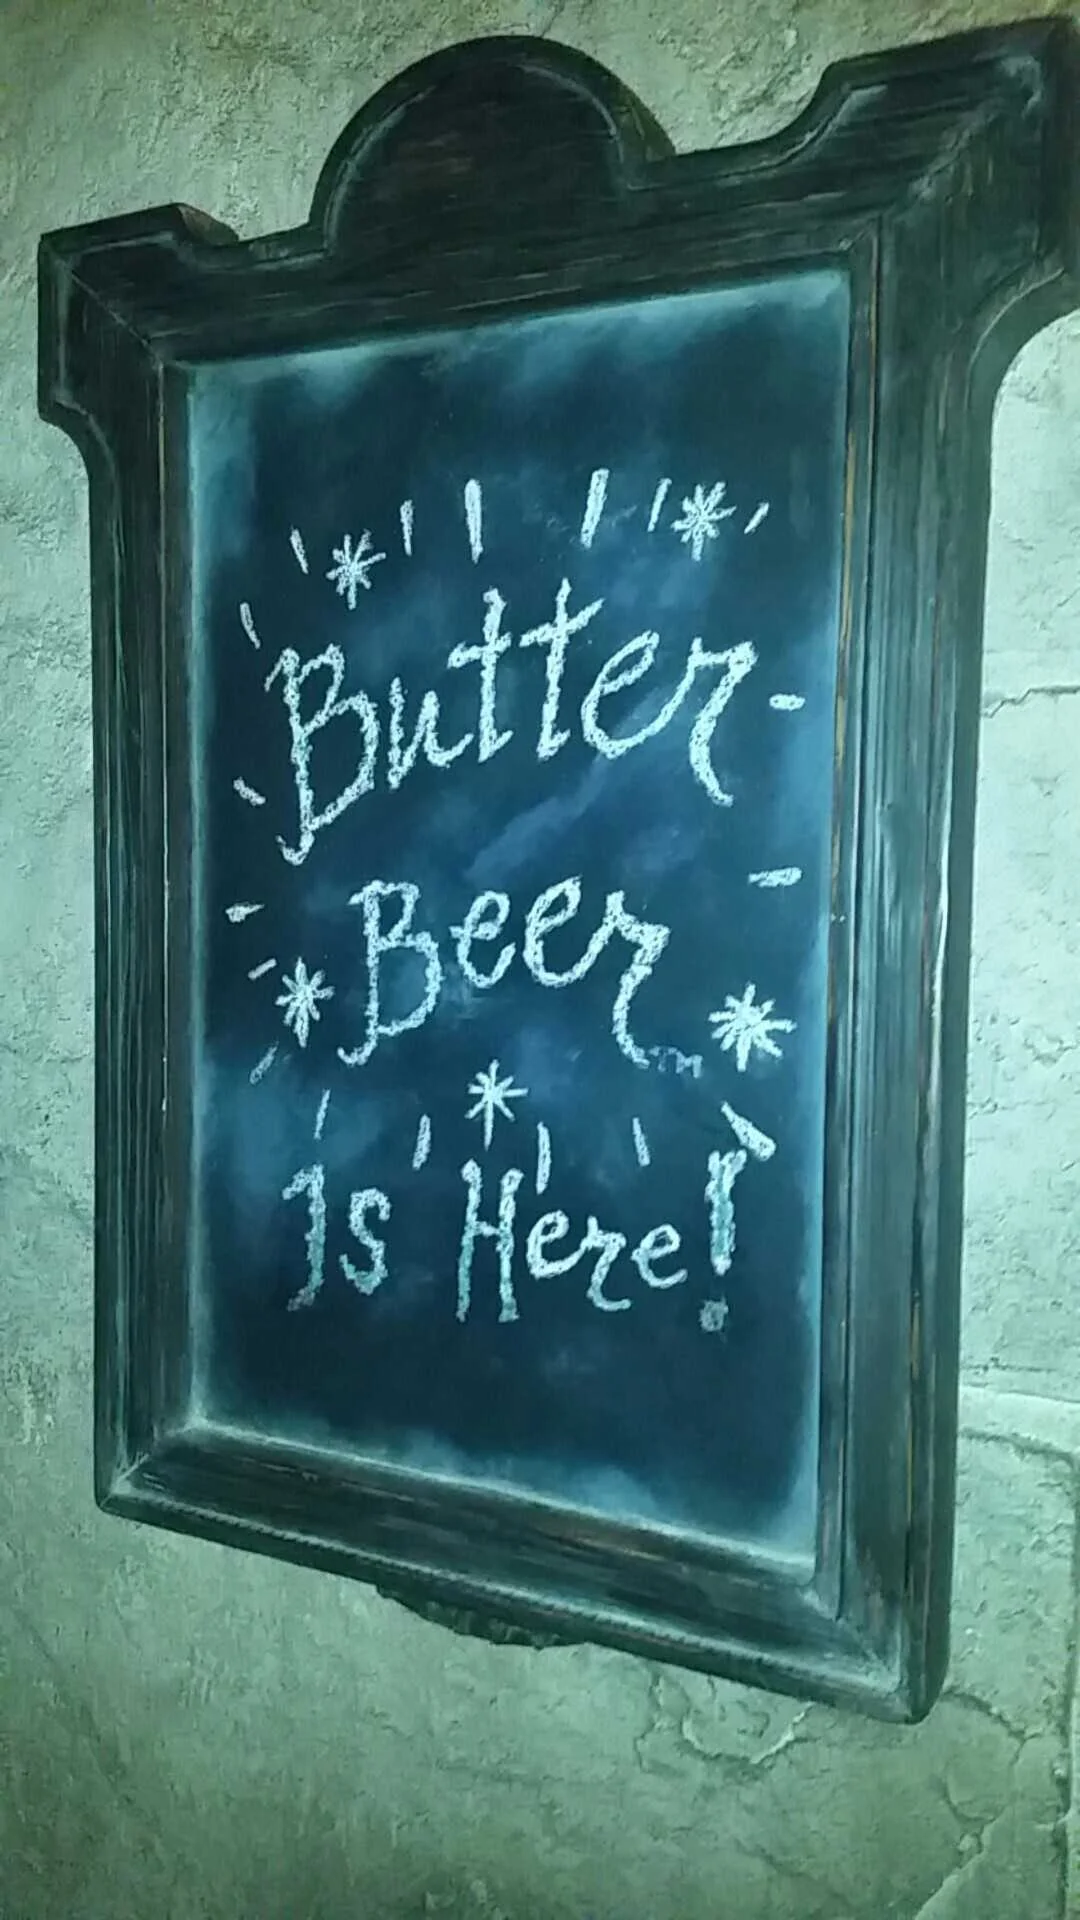 Butter-
Beer™
Is Here!